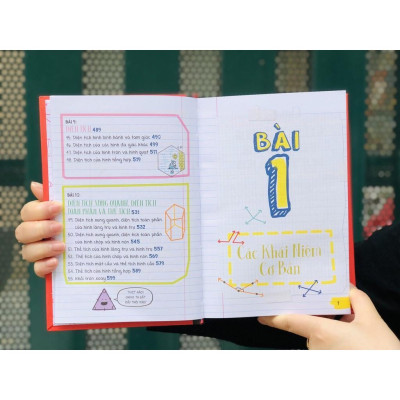 BÀI 9:
DIỆN TÍCH 489
Diện tích hình bình hành và tam giác 490
Diện tích của các hình đa giác khác 499
Diện tích của hình tròn và hình quạt 511
Diện tích của hình tổng hợp 519
BÀI 10:
DIỆN TÍCH XUNG QUANH, DIỆN TÍCH
TOÀN PHẦN VÀ THỂ TÍCH 531
Diện tích xung quanh, diện tích toàn phần
của hình lăng trụ và hình trụ 532
Diện tích xung quanh, diện tích toàn phần
của hình chóp và hình nón 545
Thể tích của hình lăng trụ và hình trụ 557
Thể tích của hình chóp và hình nón 569
Diện tích mặt cầu và thể tích hình cầu 579
Thể tích của hình tổng hợp 585
Khối tròn xoay 599
BÀI
1
Các Khái Niệm
Cơ Bản
1